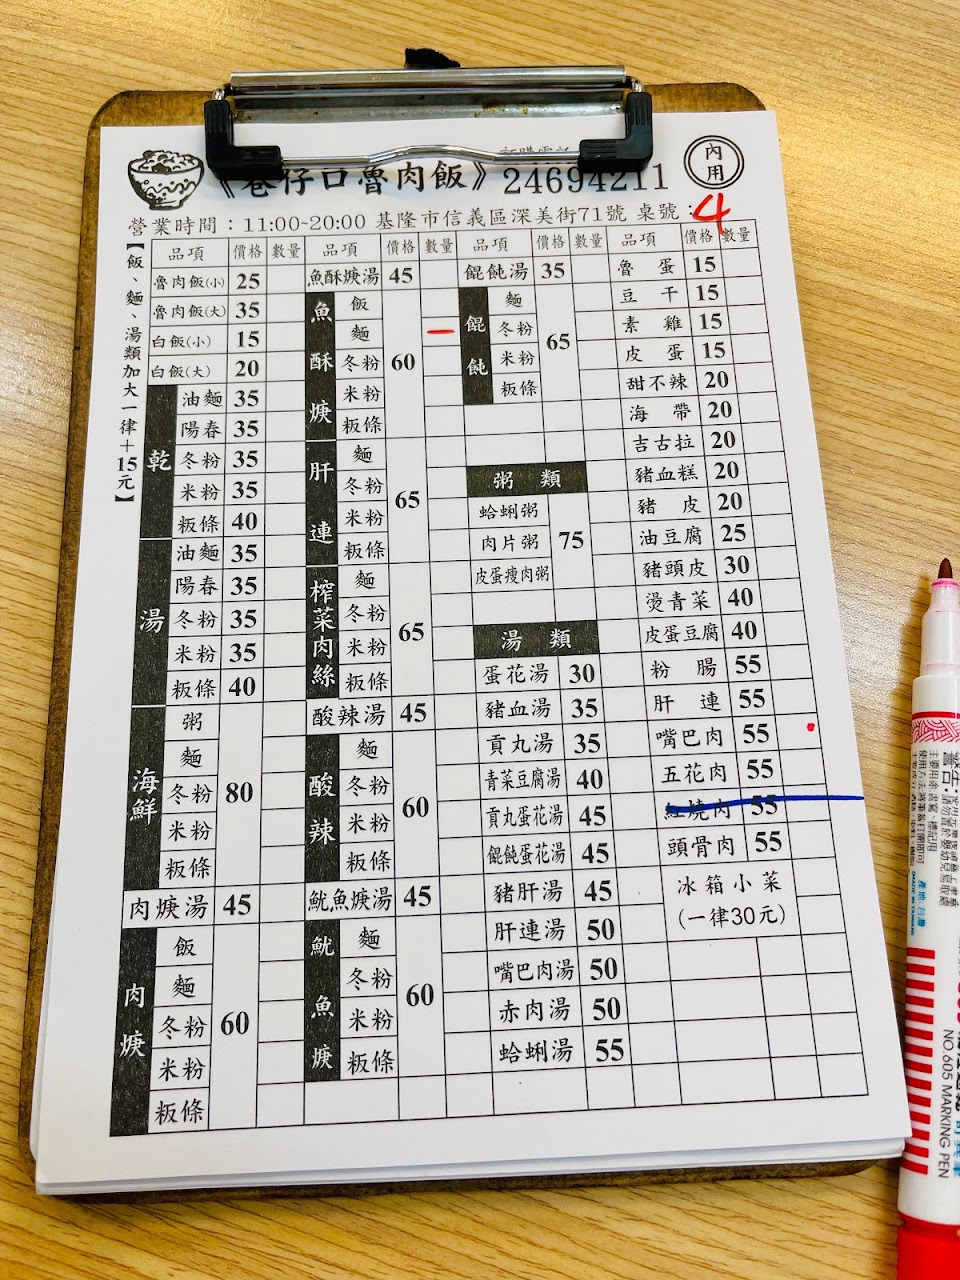 《巷仔口魯肉飯》24694211
內用
營業時間：11:00~20:00 基隆市信義區深美街71號 桌號：4
【飯、麵、湯類加大一律＋15元】
品項 價格 數量 品項 價格 數量 品項 價格 數量 品項 價格 數量
魯肉飯(小) 25
魯肉飯(大) 35
白飯(小) 15
白飯(大) 20
乾
油麵 35
陽春 35
冬粉 35
米粉 35
粄條 40
湯
油麵 35
陽春 35
冬粉 35
米粉 35
粄條 40
海鮮
粥
麵
冬粉 80
米粉
粄條
肉焿湯 45
肉焿
飯
麵
冬粉 60
米粉
粄條
魚酥焿湯 45
魚酥焿
飯
麵 一
冬粉 60
米粉
粄條
肝連
麵
冬粉 65
米粉
粄條
榨菜肉絲
麵
冬粉 65
米粉
粄條
酸辣湯 45
酸辣
麵
冬粉 60
米粉
粄條
魷魚焿湯 45
魷魚焿
麵
冬粉 60
米粉
粄條
餛飩湯 35
餛飩
麵
冬粉 65
米粉
粄條
粥類
蛤蜊粥
肉片粥 75
皮蛋瘦肉粥
湯類
蛋花湯 30
豬血湯 35
貢丸湯 35
青菜豆腐湯 40
貢丸蛋花湯 45
餛飩蛋花湯 45
豬肝湯 45
肝連湯 50
嘴巴肉湯 50
赤肉湯 50
蛤蜊湯 55
魯蛋 15
豆干 15
素雞 15
皮蛋 15
甜不辣 20
海帶 20
吉古拉 20
豬血糕 20
豬皮 20
油豆腐 25
豬頭皮 30
燙青菜 40
皮蛋豆腐 40
粉腸 55
肝連 55
嘴巴肉 55
五花肉 55
紅燒肉 55
頭骨肉 55
冰箱小菜
(一律30元)
產地：台灣
(MADE IN TAIWAN)
NO.605 MARKING PEN